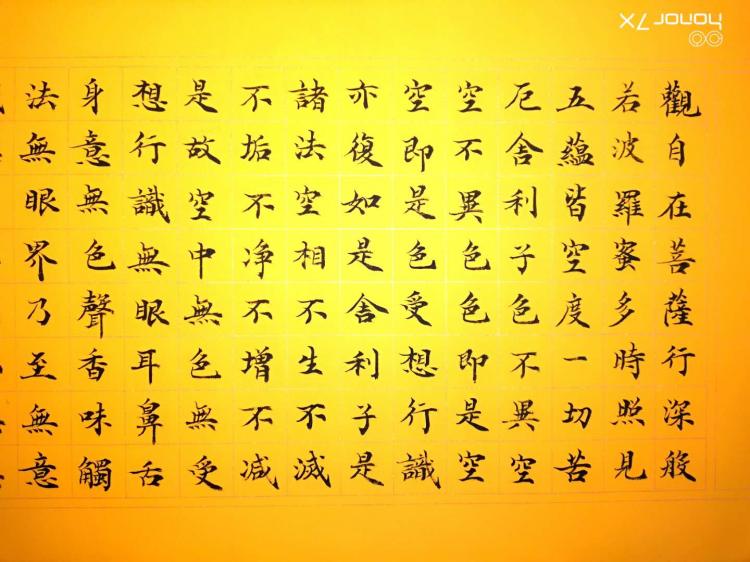 觀自在菩薩行深般
若波羅蜜多時照見
五蘊皆空度一切苦
厄舍利子色不異空
空不異色色即是空
空即是色受想行識
亦復如是舍利子是
諸法空相不生不滅
不垢不净不增不减
是故空中無色無受
想行識無眼耳鼻舌
身意無色聲香味觸
法無眼界乃至無意
honor 7X